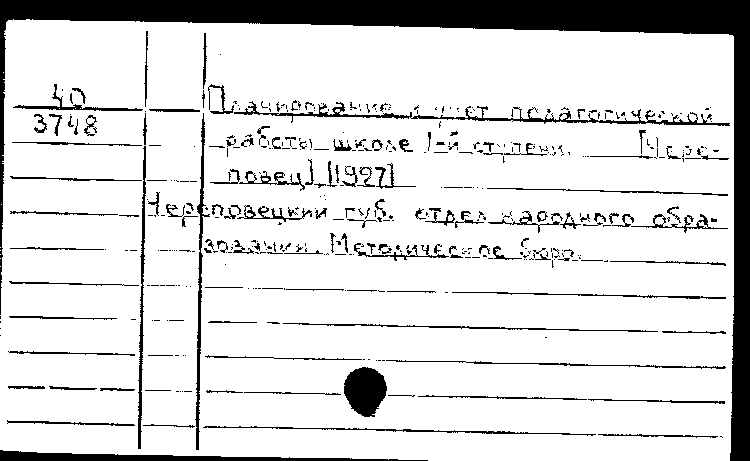 40
3748
Планирование и учет педагогической
работы школе 1-й ступени. [Чере-
повец], [1927]
Череповецкий губ. отдел народного обра-
зования. Методическое бюро.